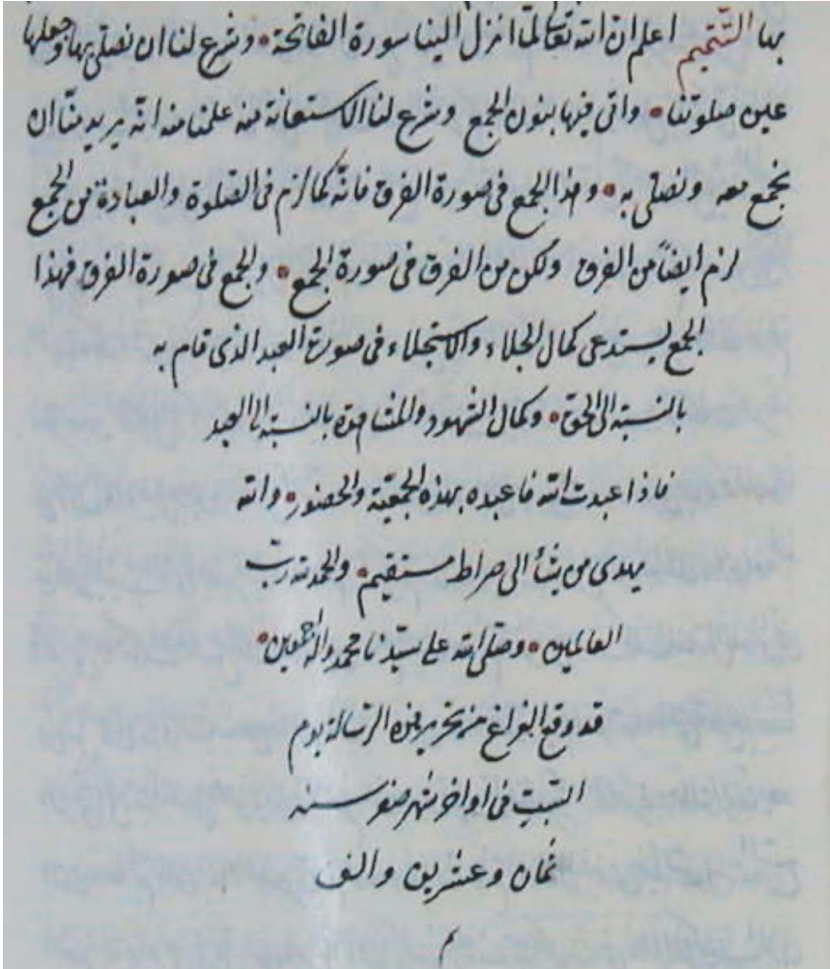 بها التتميم اعلم ان الله تعالى لمّا انزل الينا سورة الفاتحة • وشرع لنا ان نصلّى بها وجعلها
عين صلوتنا • واتى فيها بنون الجمع وشرع لنا الاستعانة منه علمنا منه انّه يريد منّا ان
نجمع معه ونصلّى به • وهذا الجمع فى صورة الفرق فانّه كما لزم فى الصّلوة والعبادة من الجمع
لزم ايضاً من الفرق ولكن من الفرق فى صورة الجمع • والجمع فى صورة الفرق فهذا
الجمع يستدعى كمال الجلاء والاستجلاء فى صورة العبد الذى قام به
بالنسبة الى الحق • وكمال الشهود والمشاهدة بالنسبة الى العبد
فاذا عبدت الله فاعبده بهذه الجمعيّة والحضور • والله
يهدى من يشأ الى صراط مستقيم • والحمد لله ربّ
العالمين • وصلّى الله على سيّدنا محمد واله اجمعين •
قد وقع الفراغ من تحرير هذه الرسالة يوم
السبت فى اواخر شهر صفر سنه
ثمان وعشرين والف
م